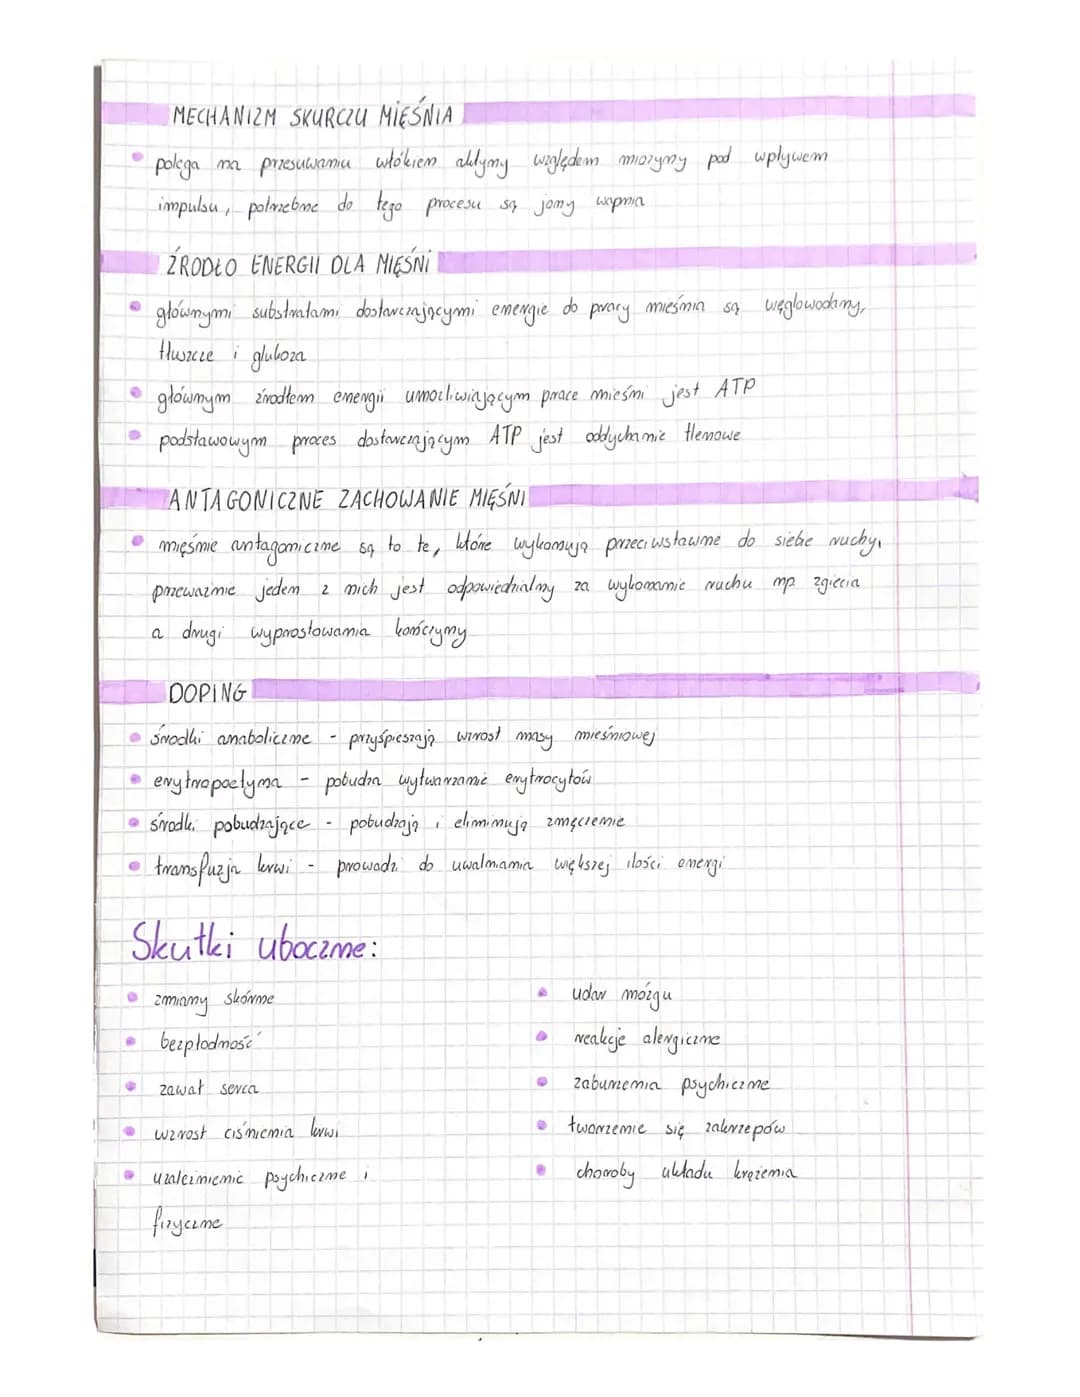 MECHANIZM SKURCZU MIĘŚNIA
polega na przesuwaniu włókien aktyny względem miozyny pod wpływem
impulsu, potrzebne do tego procesu są jony wapnia
ŹRODŁO ENERGII DLA MIĘŚNI
głównymi substratami dostarczającymi energie do pracy mieśnia są węglowodany,
tłuszcze i glukoza
głównym źródłem energii umożliwiającym prace mieśni jest ATP
podstawowym proces dostarczającym ATP jest oddychanie tlenowe
ANTAGONICZNE ZACHOWANIE MIĘŚNI
mięśnie antagoniczne są to te, które wykonują przeciwstawne do siebie ruchy,
przeważnie jeden z nich jest odpowiedzialny za wykonanie ruchu np zgięcia
a drugi wyprostowania kończyny
DOPING
środki anaboliczne - przyśpieszają wzrost masy mieśniowej
erytropoetyna - pobudza wytwarzanie erytrocytów
środki pobudzające - pobudzają i eliminują zmęczenie
transfuzja krwi - prowadzi do uwalniania większej ilości energi
Skutki uboczne:
zmiany skórne
bezpłodność
zawał serca
wzrost ciśnienia krwi
uzależnienie psychiczne i
fizyczne
udar mózgu
reakcje alergiczne
zaburzenia psychiczne
tworzenie się zakrzepów
choroby układu krążenia